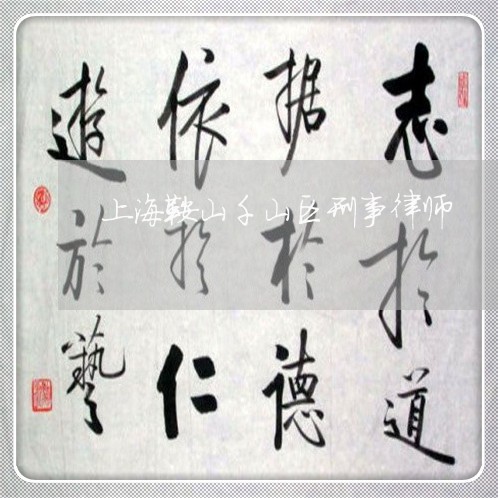 志於道
据於德
依於仁
遊於藝
上海鞍山千山区刑事律师